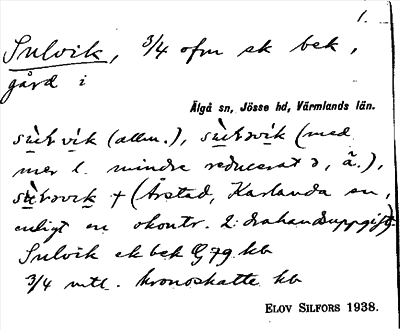 1.
Sulvik, 3/4 ofm sk bek,
gård i
Älgå sn, Jösse hd, Värmlands län.
(allm.), (med
mer l. mindre reducerat ɔ, ã.),
+ (Årstad, Karlanda sn,
enligt en okontr. 2:ahandsuppgift).
Sulvik sk bek G 79 kb
3/4 mtl. kronoskatte kb
ELOV SILFORS 1938.